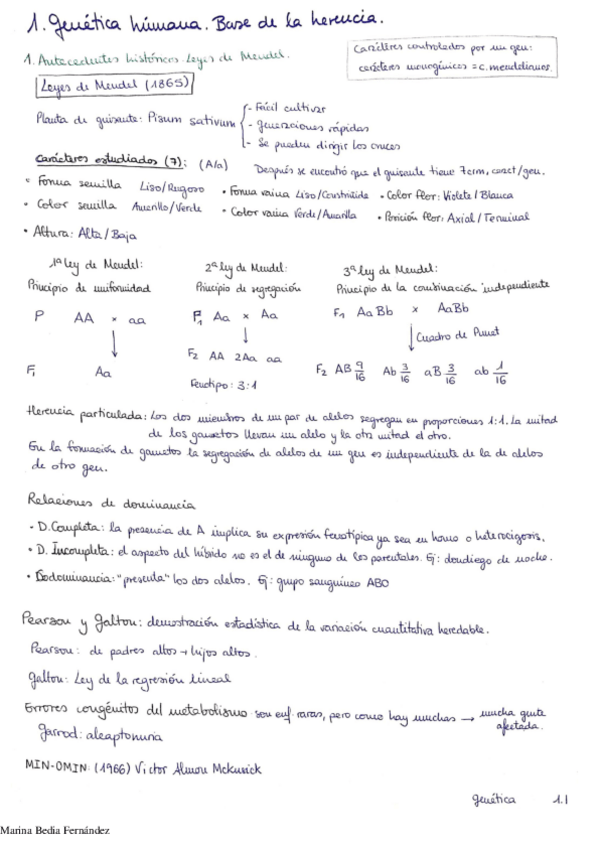 1. Genética humana. Base de la herencia.
1. Antecedentes históricos. Leyes de Mendel.
Carácteres controlados por un gen:
carácteres monogénicos = c. mendelianos.
Leyes de Mendel (1865)
Planta de guisante: Pisum sativum
- Fácil cultivar
- Generaciones rápidas
- Se pueden dirigir los cruces
Carácteres estudiados (7): (A/a) Después se encontró que el guisante tiene 7crm, caract/gen.
• Forma semilla Liso/Rugoso • Forma vaina Liso/Constreñida • Color flor: Violeta/Blanca
• Color semilla Amarillo/Verde • Color vaina Verde/Amarilla • Posición flor: Axial/Terminal
• Altura: Alta/Baja
1ª ley de Mendel: 2ª ley de Mendel: 3ª ley de Mendel:
Principio de uniformidad Principio de segregación Principio de la combinación independiente
P AA x aa F1 Aa x Aa F1 AaBb x AaBb
Cuadro de Punet
F1 Aa F2 AA 2Aa aa F2 AB 9/16 Ab 3/16 aB 3/16 ab 1/16
Fenotipo: 3:1
Herencia particulada: Los dos miembros de un par de alelos segregan en proporciones 1:1. La mitad
de los gametos llevan un alelo y la otra mitad el otro.
En la formación de gametos la segregación de alelos de un gen es independiente de la de alelos
de otro gen.
Relaciones de dominancia
• D.Completa: la presencia de A implica su expresión fenotípica ya sea en homo o heterocigosis.
• D. Incompleta: el aspecto del híbrido no es el de ninguno de los parentales. Ej: dondiego de noche.
• Codominancia: "presenta" los dos alelos. Ej: grupo sanguíneo ABO
Pearson y Galton: demostración estadística de la variación cuantitativa heredable.
Pearson: de padres altos → hijos altos.
Galton: Ley de la regresión lineal
Errores congénitos del metabolismo son enf. raras, pero como hay muchas → mucha gente
afectada.
Garrod: alcaptonuria
MIN-OMIN: (1966) Victor Almon Mckusick
Genética 1.1
Marina Bedia Fernández